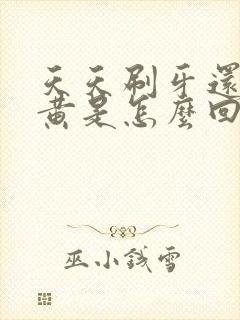 天天刷牙還
黃是怎麼回
巫小錢雪